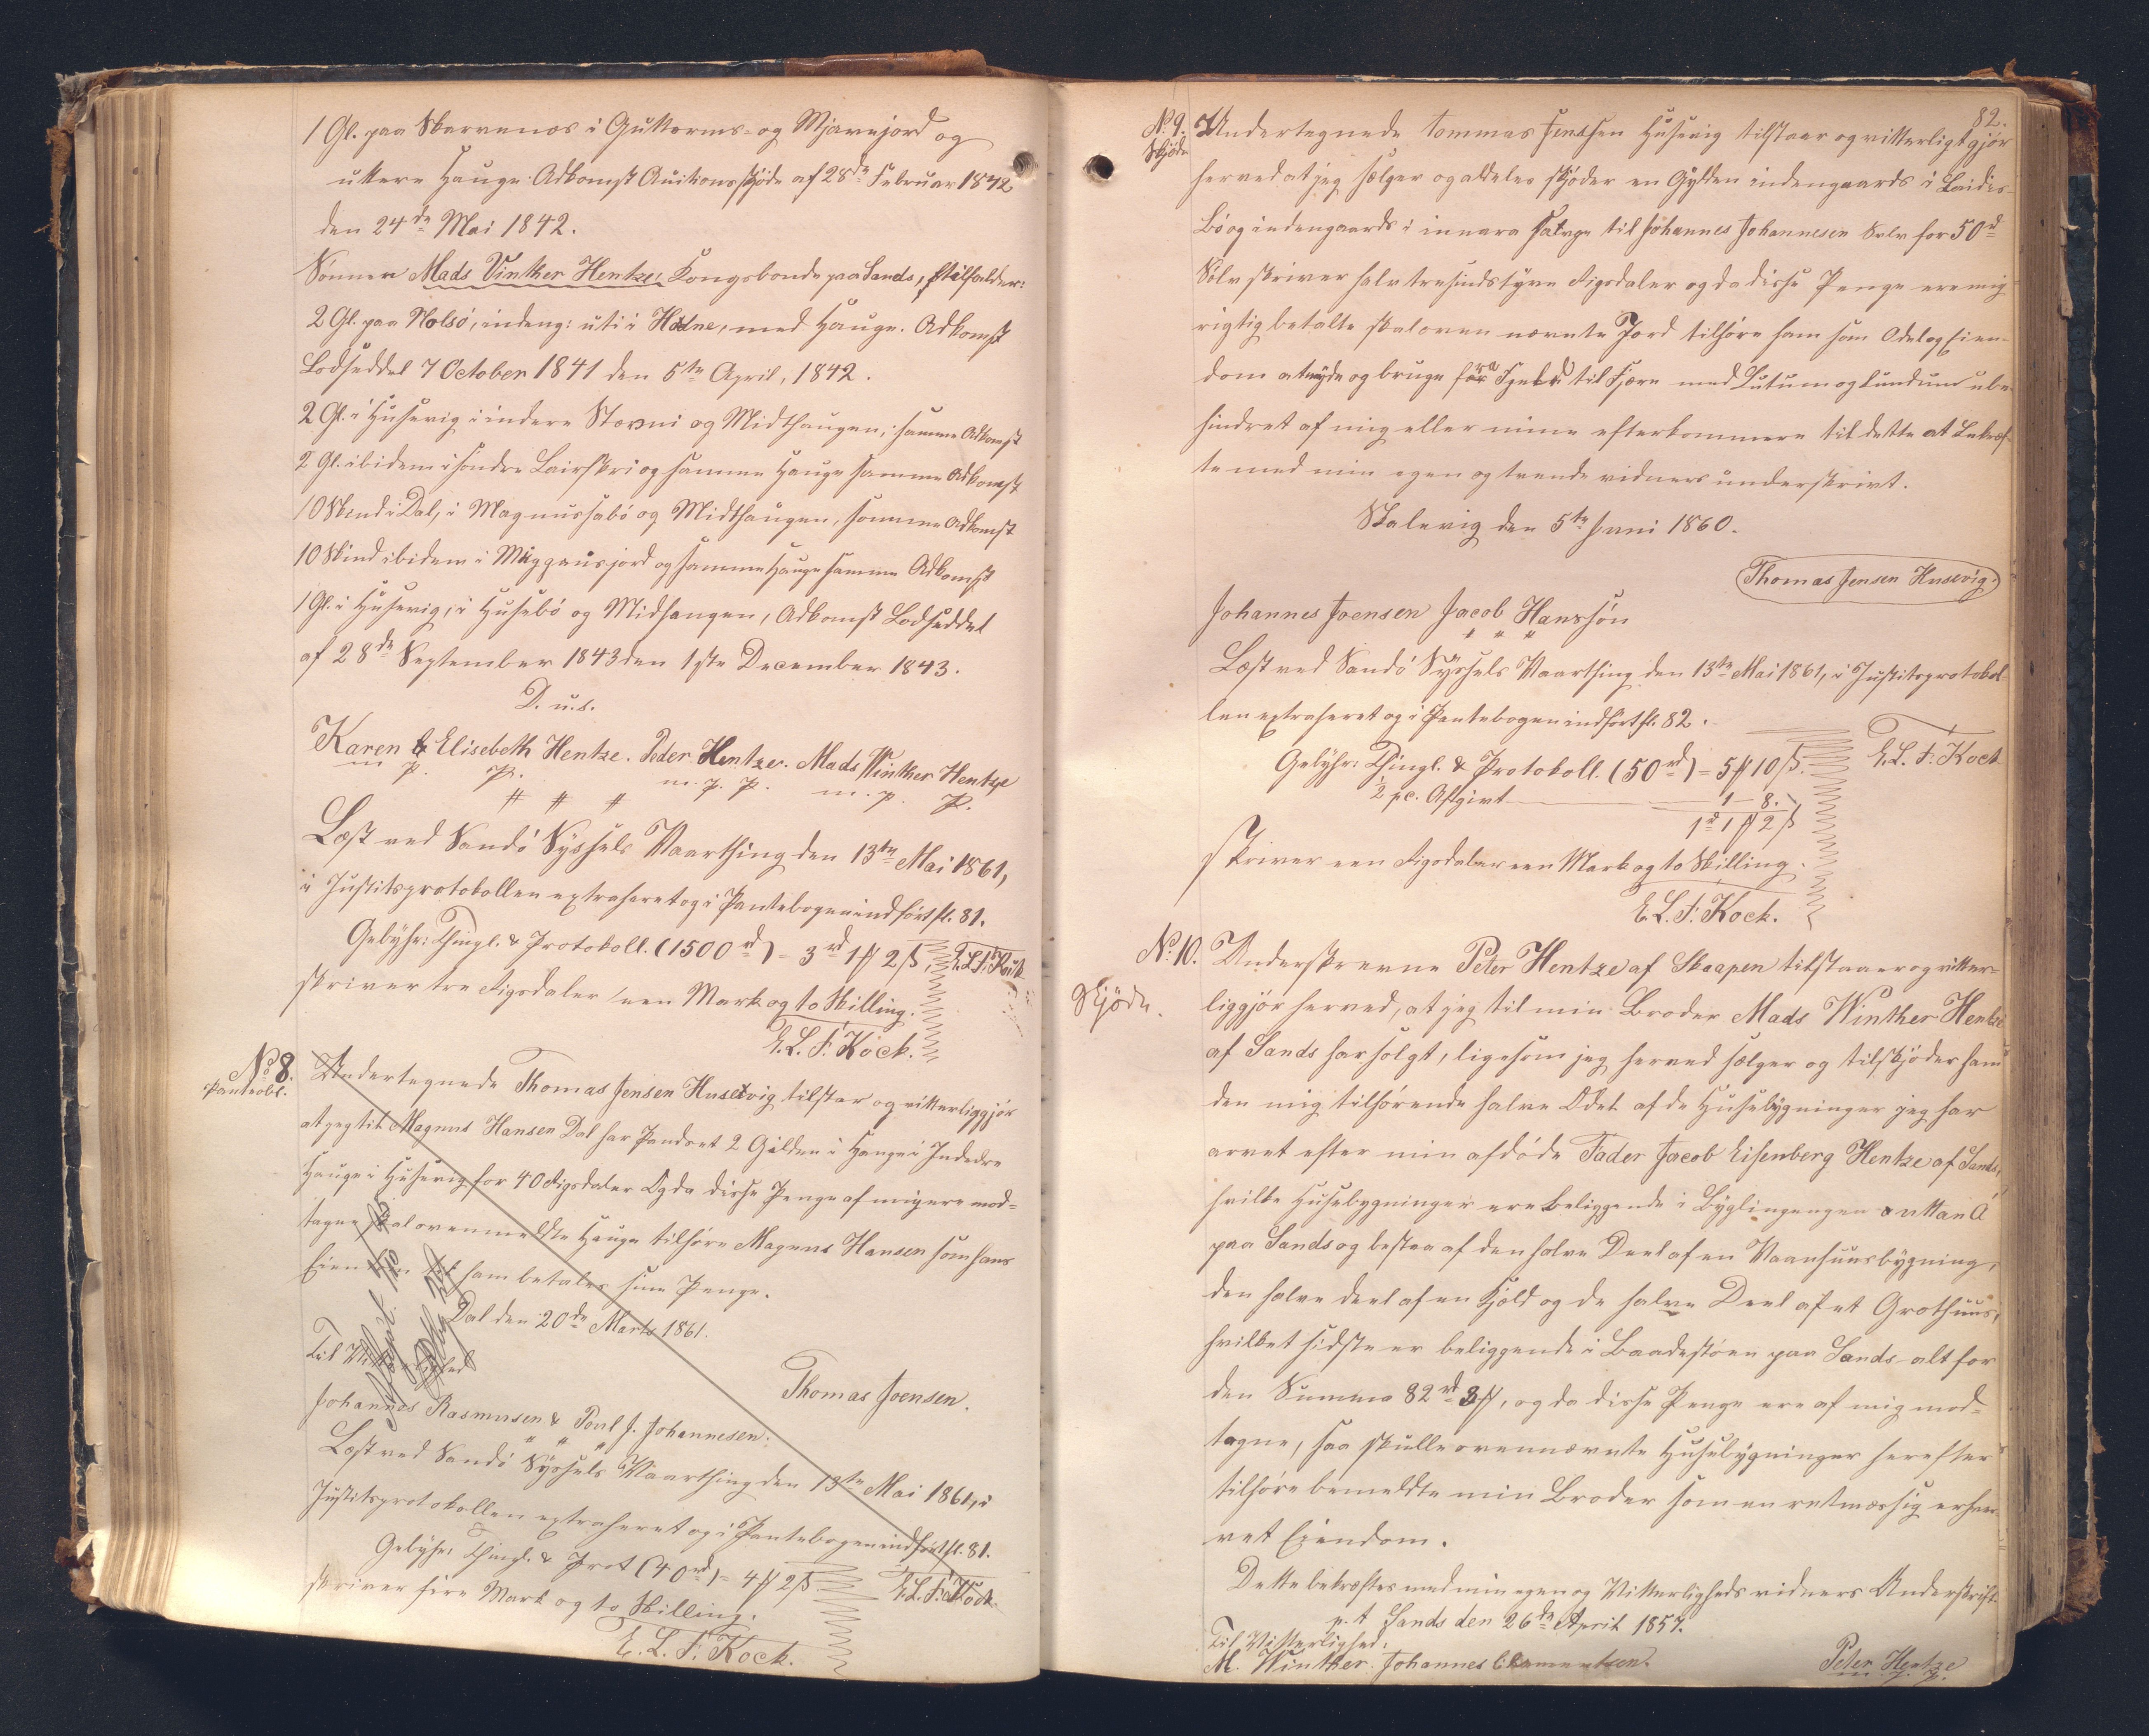 1 Gl. paa Skarvenes i Guttorms- og Mjavejord og
uttere Hauge. Adkomst Auktionsskjöde af 28de Februar 1842
den 24de Mai 1842.
Sönnen Mads Vinther Hentze Kongsbonde paa Sands, tilfalder:
2 Gl. paa Nolsö, indeng: uti i Hödne, med Hauge. Adkomst
Lodseddel 7 October 1841 den 5te April, 1842.
2 Gl. i Husevig i indere Stovni og Midthaugen, samme Adkomst
2 Gl. ibidem i söndre Leirskri og samme Hauge samme Adkomst
10 Skind i Dal, i Magnussabö og Midthaugen, samme Adkomst
10 Skind ibidem i Miggausjord og samme Hauge samme Adkomst
1 Gl. i Husevig, i Husebö og Midhaugen, Adkomst Lodseddel
af 28de September 1843 den 1ste December 1843.
D. u. s.
Karen Elisebeth Hentze. Peder Hentze. Mads Winther Hentze
m. p. p. m. p. p. m. p. p.
Læst ved Sandö Syssels Vaarthing den 13te Mai 1861,
i Justitsprotokollen extraheret og i Pantebogen indfört fl. 81.
Gebyhr: Thingl. & Protokoll. (1500 rd) = 3 rd 1 # 2 ß. E. L. F. Kock
skriver tre Rigsdaler een Mark og to Skilling.
E. L. F. Kock.
No 8. Undertegnede Thomas Jensen Husevig tilstar og vitterliggjör
Panteobl.
at jeg til Magnus Hansen Dal har Pandset 2 Gilden i Hauge i Indedre
Hauge i Husevig for 40 Rigsdaler Og da disse Penge af mig ere mod-
tagne skal ovenmeldte Hauge tilhöre Magnus Hansen som hans
Eiendom til ham betales sine Penge.
Dal den 20de Marts 1861.
Til Vitterlighed
Thomas Joensen.
Johannes Rasmusen & Poul J. Johannesen.
Læst ved Sandö Syssels Vaarthing den 13te Mai 1861, i
Justitsprotokollen extraheret og i Pantebogen indfört fl. 81.
Gebyhr: Thingl. & Prot (40 rd) = 4 # 2 ß. E. L. F. Kock.
skriver fire Mark og to Skilling.
E. L. F. Kock.
82.
No 9. Undertegnede Tommas Jensen Husevig tilstaar og vitterligtgjör
Skjöde
herved at jeg sælger og aldeles skjöder en Gylden indengaards i Leidis
Bö og indengaards i innara Hauge til Johannes Johannesen Selv for 50 d
Sölv skriver halvtresindstyve Rigsdaler og da disse Penge ere mig
rigtig betalte skal oven nævnte Jord tilhöre ham som Odel og Eien-
dom at nyde og bruge fra Fjeld til Fjære med Lutum og Lundum ube-
hindret af mig eller mine efterkommere til dette at bekræf-
te med min egen og tvende vidners underskrivt.
Skalevig den 5te Juni 1860.
Thomas Jensen Husevig.
Johannes Joensen Jacob Hanssön
Læst ved Sandö Syssels Vaarthing den 13te Mai 1861, i Justitsprotokol-
len extraheret og i Pantebogen indfört fl. 82.
Gebyhr: Thingl. & Protokoll. (50 rd) = 5 # 10 ß. E. L. F. Kock
½ pc. Afgivt 1 - 8.
1 rd 1 # 2 ß
skriver een Rigsdaler een Mark og to Skilling.
E. L. F. Kock.
No 10. Underskrevne Peter Hentze af Skaapen tilstaaer og vitter-
Skjöde.
liggjör herved, at jeg til min Broder Mads Winther Hentze
af Sands har solgt, ligesom jeg herved sælger og tilskjöder ham
den mig tilhörende halve Odel af de Husebygninger jeg har
arvet efter min afdöde Fader Jacob Eisenberg Hentze af Sands,
hvilke Husebygninger ere beliggende i Byglingengen uttan Á
paa Sands og bestaa af den halve Deel af en Vaanhuusbygning,
den halve deel af en Hjold og de halve Deel af et Grothuus,
hvilket sidste er beliggende i Baadestöen paa Sands alt for
den Summa 82 rd 3 #, og da disse Penge ere af mig mod-
tagne, saa skulle ovennævnte Husebygninger herefter
tilhöre bemeldte min Broder som en retmæssig erhver-
vet Eiendom.
Dette bekræftes med min egen og Vitterligheds vidners Underskrift.
p. t. Sands den 26de April 1857.
Til Vitterlighed:
M. Winther. Johannes Clementsen. Peter Hentze
m. p. p.